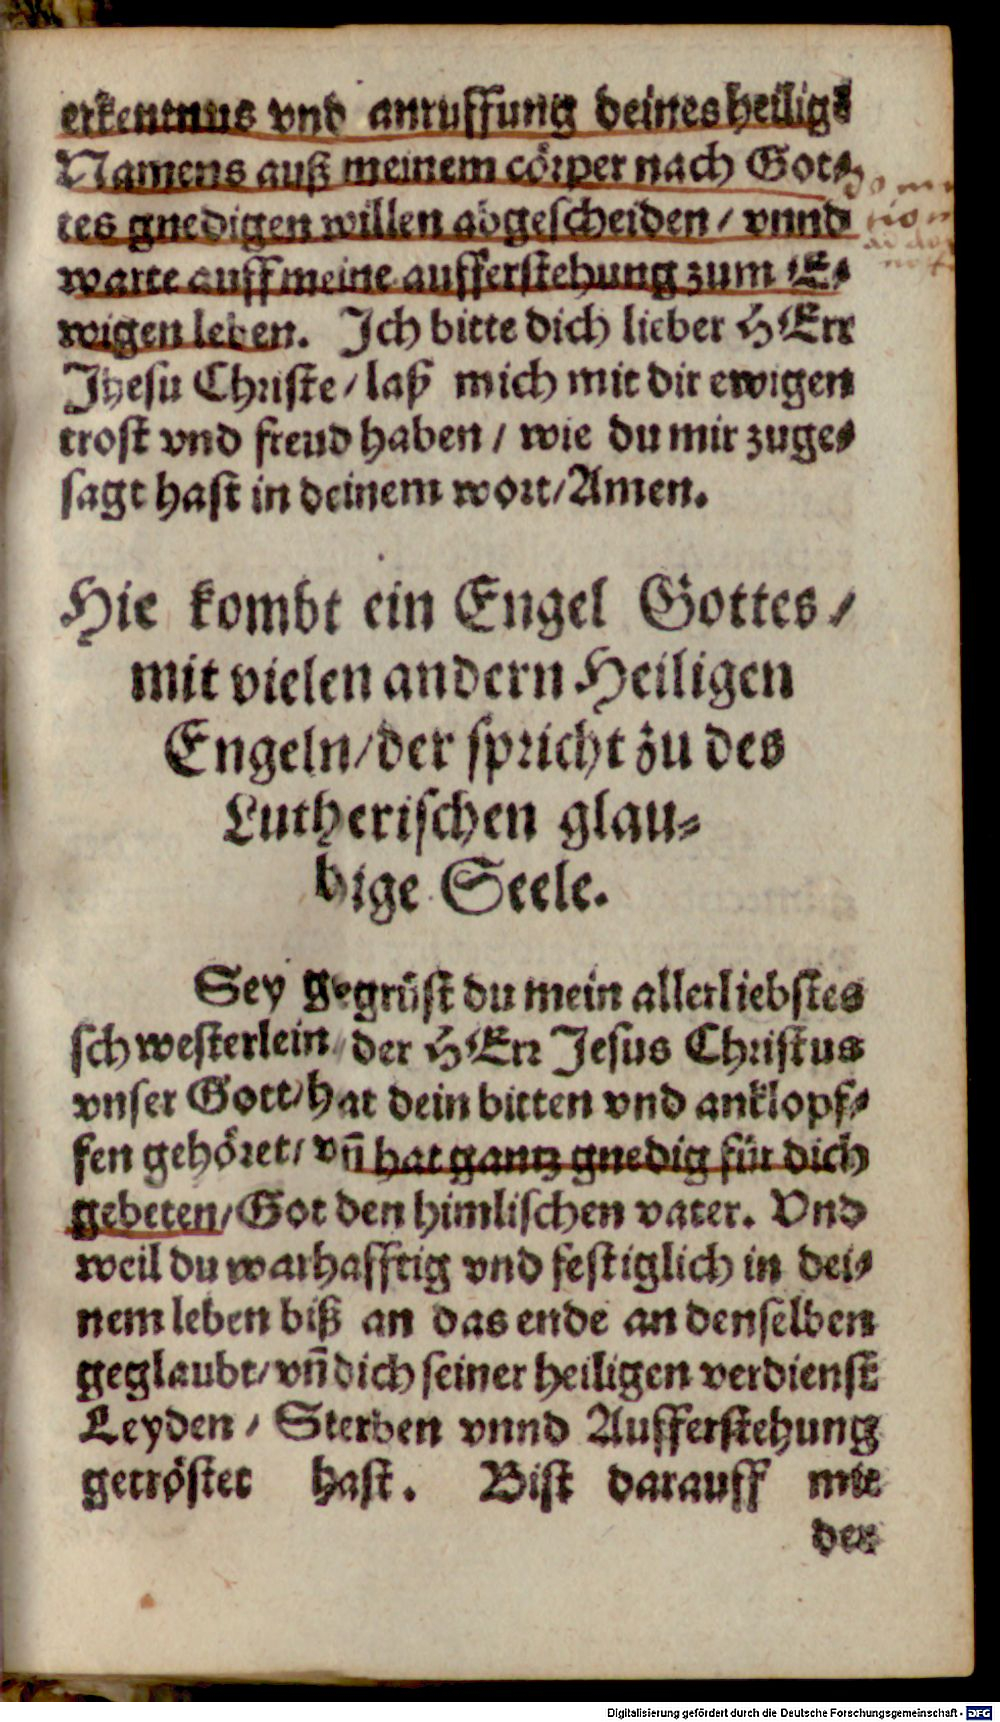 erkentnus vnd anruffung deines heiligē
Namens auß meinem cörper nach Got⸗
tes gnedigen willen abgescheiden / vnnd
warte auff meine aufferstehung zum E⸗
wigen leben. Ich bitte dich lieber HErr
Jhesu Christe / laß mich mit dir ewigen
trost vnd freud haben / wie du mir zuge⸗
sagt hast in deinem wort / Amen.
Hie kombt ein Engel Gottes /
mit vielen andern Heiligen
Engeln / der spricht zu des
Lutherischen glau⸗
bige Seele.
Sey gegrüst du mein allerliebstes
schwesterlein / der HErr Jesus Christus
vnser Gott / hat dein bitten vnd anklopf⸗
fen gehöret / vñ hat gantz gnedig für dich
gebeten / Got den himlischen vater. Vnd
weil du warhafftig vnd festiglich in dei⸗
nem leben biß an das ende an denselben
geglaubt / vñ dich seiner heiligen verdienst
Leyden / Sterben vnnd Aufferstehung
getröstet hast. Bist darauff mit
der
Digitalisierung gefördert durch die Deutsche Forschungsgemeinschaft - DFG